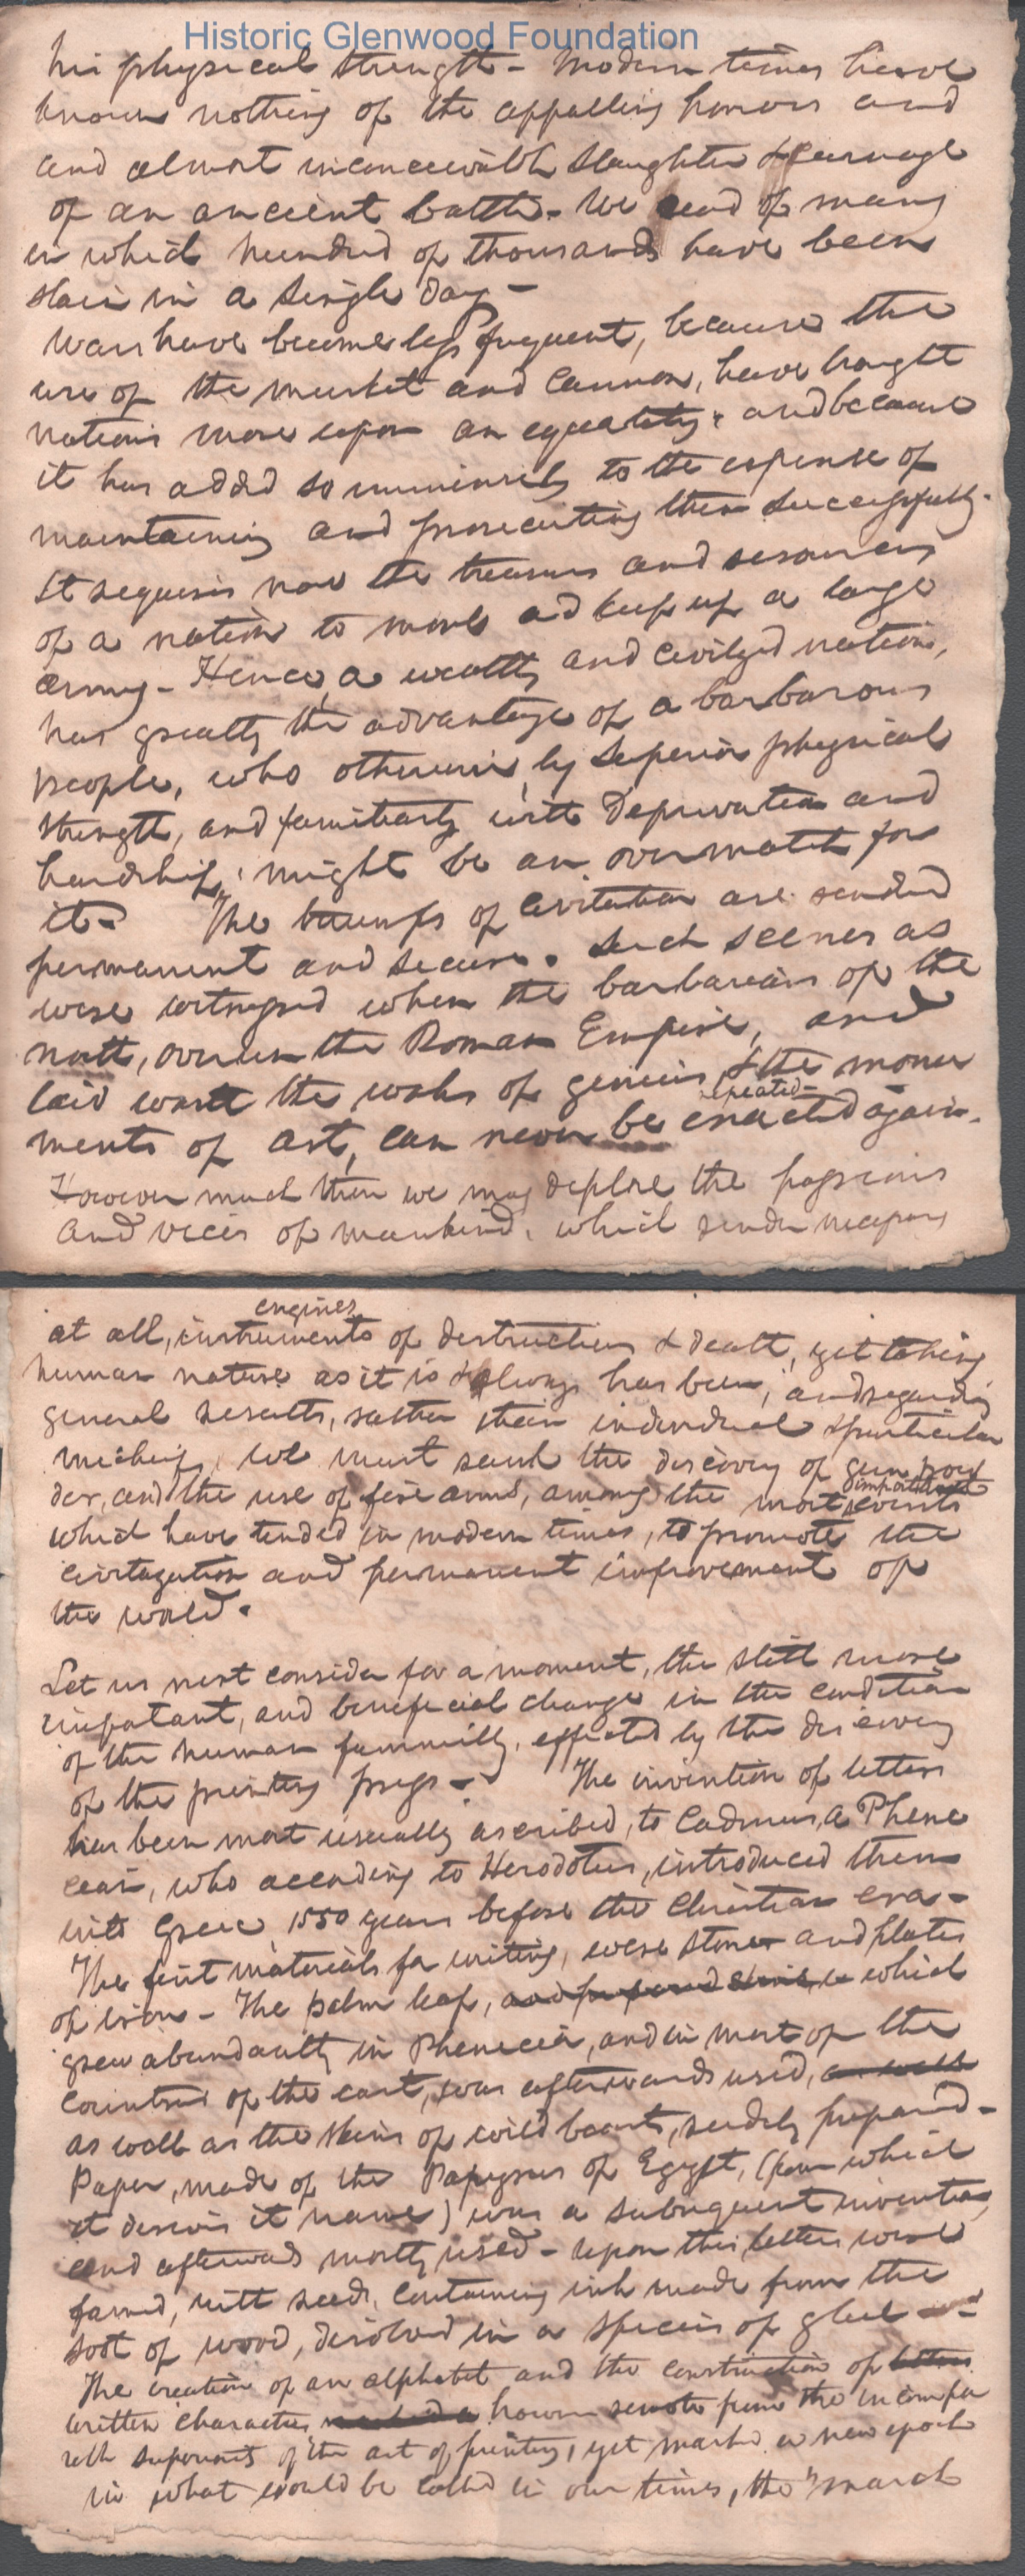 Historic Glenwood Foundation
his physical strength - Modern times have
known nothing of the appalling horrors and
and almost inconceivable slaughter & carnage
of an ancient battle. We read of many
in which hundred of thousands have been
slain in a single day -
Wars have become less frequent, because the
use of the musket and cannon, have brought
nations more upon an equality; and because
it has added so immensely to the expense of
maintaining and prosecuting them successfully.
It requires now the treasures and resources
of a nation to move and keep up a large
army - Hence, a wealthy and civilized nation,
has greatly the advantage of a barbarous
people, who otherwise, by superior physical
strength, and familiarity with deprivation and
hardship, might be an overmatch for
it - The triumphs of civilization are rendered
permanent and secure. Such scenes as
were witnessed when the barbarians of the
north, overrun the Roman Empire, and
laid waste the works of genius & the monu
repeated -
ments of art, can never be enacted again.
However much then we may deplore the passions
and vices of mankind, which render weapons
engines
at all, instruments of destruction & death, yet taking
human nature as it is & always has been, and regarding
general results, rather than individual & particular
mischiefs, we must rank the discovery of gun pow
der, and the use of fire arms, among the most events
important
which have tended in modern times, to promote the
civilization and permanent improvement of
the world.
Let us next consider for a moment, the still more
important, and beneficial change in the condition
of the human fammilly, effected by the discovery
of the printing press - The invention of letters
has been most usually ascribed, to Cadmus, a Phene
cian, who according to Herodotus, introduced them
into Greece 1550 years before the Christian era -
The first materials for writing, were stones and plates
of iron - The palm leaf, and prepared skins, which
grew abundantly in Phenecia, and in most of the
countries of the east, was afterwards used, as well
as well as the skins of wild beasts, rudely prepared -
Paper, made of the Papyrus of Egypt, (from which
it derives it name) was a subsequent invention,
and afterwards mostly used - Upon this, letters were
formed, with reeds, containing ink made from the
soot of wood, disolved in a species of glue -
The creation of an alphabet and the construction of letters
written characters however remote from the incompa
rable superiority of the art of printing, yet marked a new epoch
in what would be called in our times, the "march